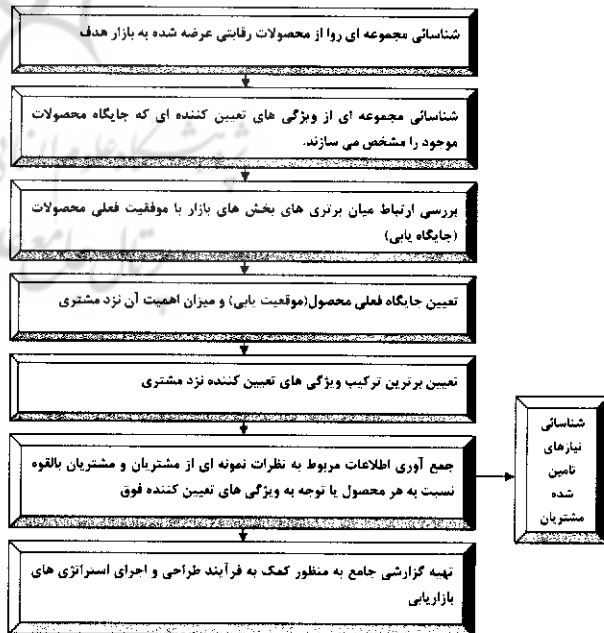 شناسائی مجموعه ای روا از محصولات رقابتی عرضه شده به بازار هدف
شناسائی مجموعه ای از ویژگی های تعیین کننده ای که جایگاه محصولات
موجود را مشخص می سازند.
بررسی ارتباط میان برتری های بخش های بازار با موفقیت فعلی محصولات
(جایگاه یابی)
تعیین جایگاه فعلی محصول(موقعیت یابی) و میزان اهمیت آن نزد مشتری
تعیین برترین ترکیب ویژگی های تعیین کننده نزد مشتری
جمع آوری اطلاعات مربوط به نظرات نمونه ای از مشتریان و مشتریان بالقوه
نسبت به هر محصول با توجه به ویژگی های تعیین کننده فوق
شناسائی
نیازهای
تامین
شده
مشتریان
تهیه گزارشی جامع به منظور کمک به فرآیند طراحی و اجرای استراتژی های
بازاریابی